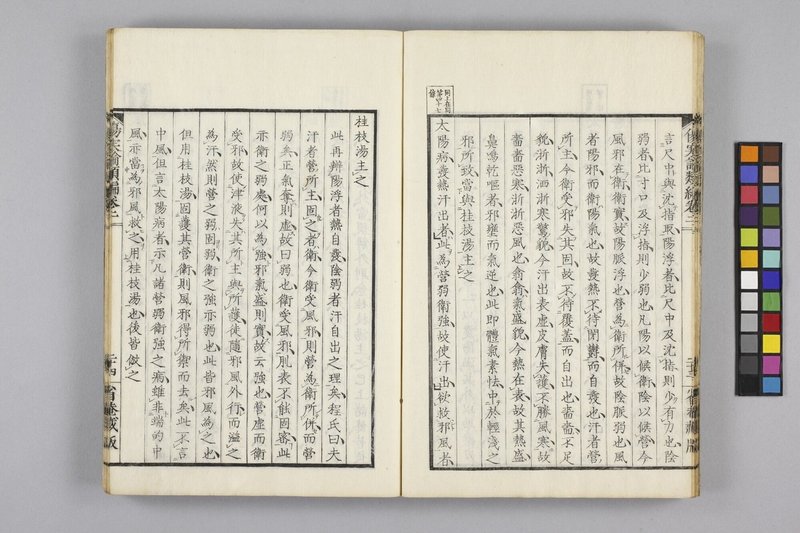 言尺中與沈指取陽浮者比尺中及沈指則少有力也陰
弱者比寸口及浮指則少弱也凡陽以候衛陰以候營今
風邪在衛衛實故陽脈浮也營為衛所併故陰脈弱也風
者陽邪而衛陽氣也故發熱不待閉鬱而自發也汗者營
所主今衛受邪失其固故不待覆蓋而自出也嗇嗇不足
貌淅淅洒淅寒驚貌今汗出表虛皮膚失護不勝風寒故
嗇嗇惡寒淅淅惡風也翕翕盛貌今熱在表故其熱盛
鼻鳴乾嘔者邪壅而氣逆也此即體氣素怯中於輕淺之
邪所致當與桂枝湯主之
太陽病發熱汗出者此為營弱衛強故使汗出欲救邪風者
桂枝湯主之
此再辨陽浮者熱自發陰弱者汗自出之理矣程氏曰夫
汗者營所主固之者衛今衛受風邪則營為衛所併而營
弱矣正氣奪則虛故曰弱也衛受風邪肌表不能固密此
亦衛之弱處何以為強邪氣盛則實故云強也營虛而衛
受邪故使津液失其所主與所護徒隨邪風外行而溢之
為汗然則營之弱固弱衛之強亦弱也此皆邪風為之也
但用桂枝湯固護其營衛則風邪得所禦而去矣此不言
中風但言太陽病者示凡諸營弱衛強之病雖非端的中
風亦當為邪風救之用桂枝湯也後皆倣之
傷寒論類編卷二
二十四